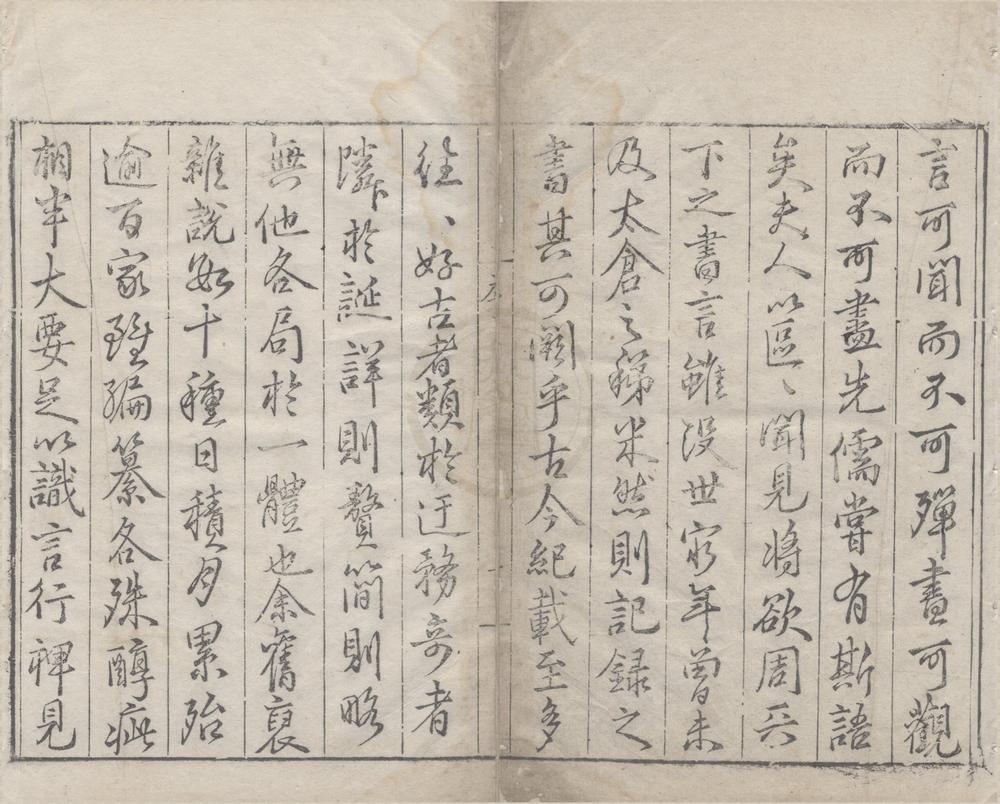 言可聞而不可殫書可觀
而不可盡先儒嘗有斯語
矣夫人以區〻聞見將欲周天
下之書言雖没世窮年曾未
及太倉之稊米然則記錄之
書其可闕乎古今紀載至多
序
一
往〻好古者類於迂務奇者
隣於誕詳則贅簡則略
無他各局於一體也余舊裒
雜說數十種日積月累殆
逾百家雖編纂各殊醇疵
相半大要足以識言行裨見